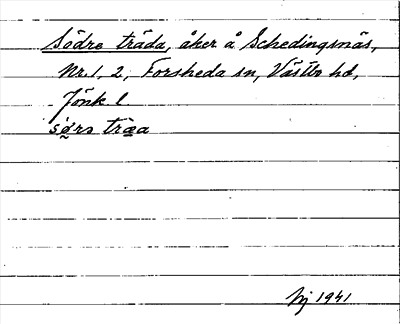 Södre träda, åker å Schedingsnäs,
Nr. 1, 2, Forsheda sn, Västbo hd,
Jönk. l.
sørs træa
Nj 1941